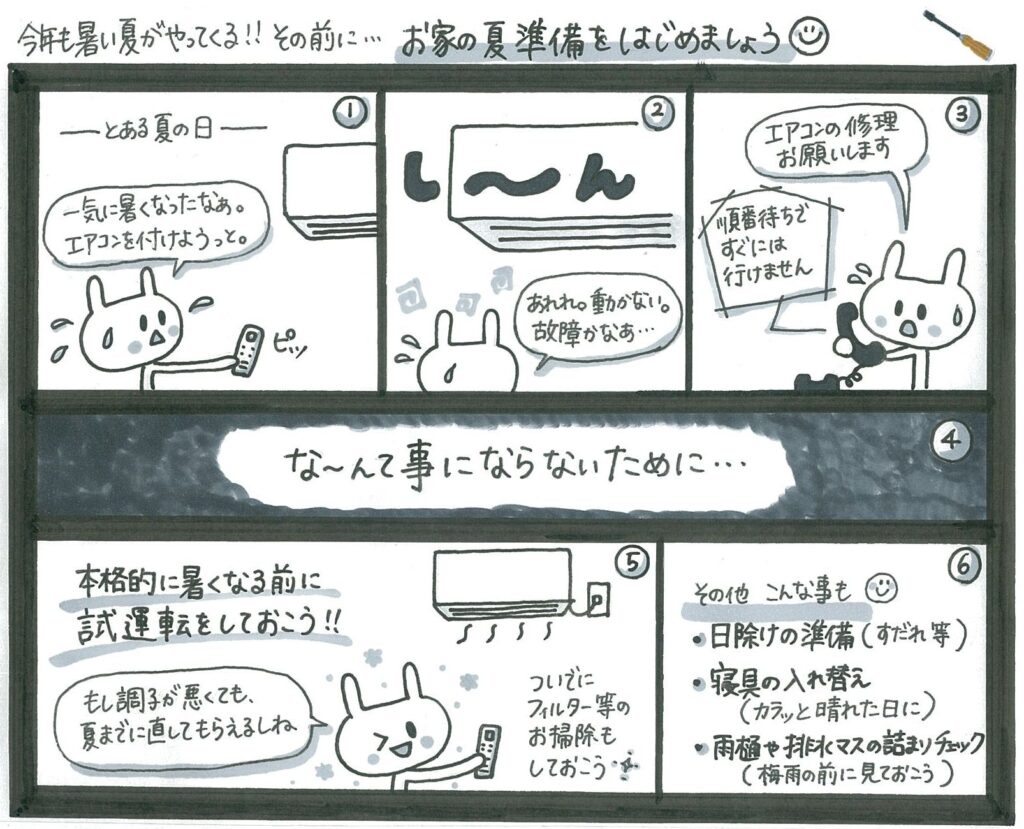 今年も暑い夏がやってくる!! その前に… お家の夏準備をはじめましょう
①
とある夏の日
一気に暑くなったなぁ。
エアコンを付けようっと。
ピッ
②
し〜ん
あれれ。動かない。
故障かなぁ…
③
エアコンの修理
お願いします
順番待ちで
すぐには
行けません
④
な〜んて事にならないために…
⑤
本格的に暑くなる前に
試運転をしておこう!!
もし調子が悪くても、
夏までに直してもらえるしね
ついでに
フィルター等の
お掃除も
しておこう
⑥
その他 こんな事も
・日除けの準備(すだれ等)
・寝具の入れ替え
(カラッと晴れた日に)
・雨樋や排水マスの詰まりチェック
(梅雨の前に見ておこう)